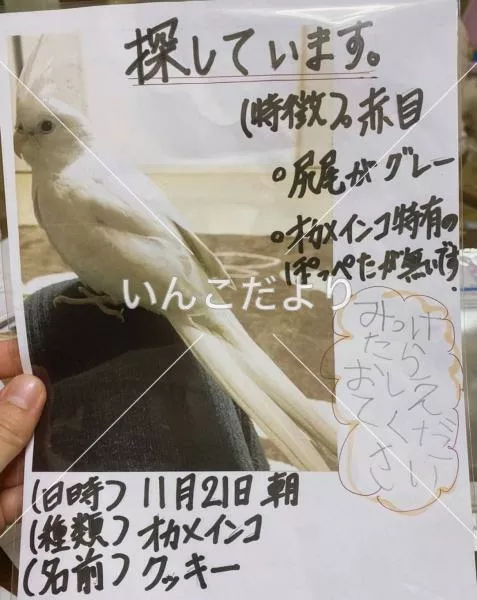 探しています。
(特徴)。赤目
。尻尾がグレー
。オカメインコ特有の
ほっぺたが無いです.
みつけ
たら
おしえ
てくだ
さい
いんこだより
(日時) 11月21日 朝
(種類) オカメインコ
(名前) クッキー